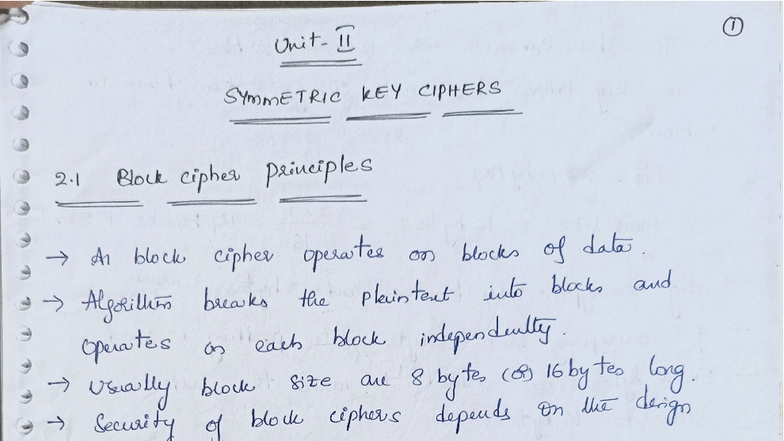 ①
Unit- II
SYMMETRIC KEY CIPHERS
2.1 Block cipher principles
→ An block cipher operates on blocks of data.
→ Algorithm breaks the plaintext into blocks and
operates on each block independently.
→ Usually block size are 8 bytes (or) 16 bytes long.
→ Security of block ciphers depends on the design